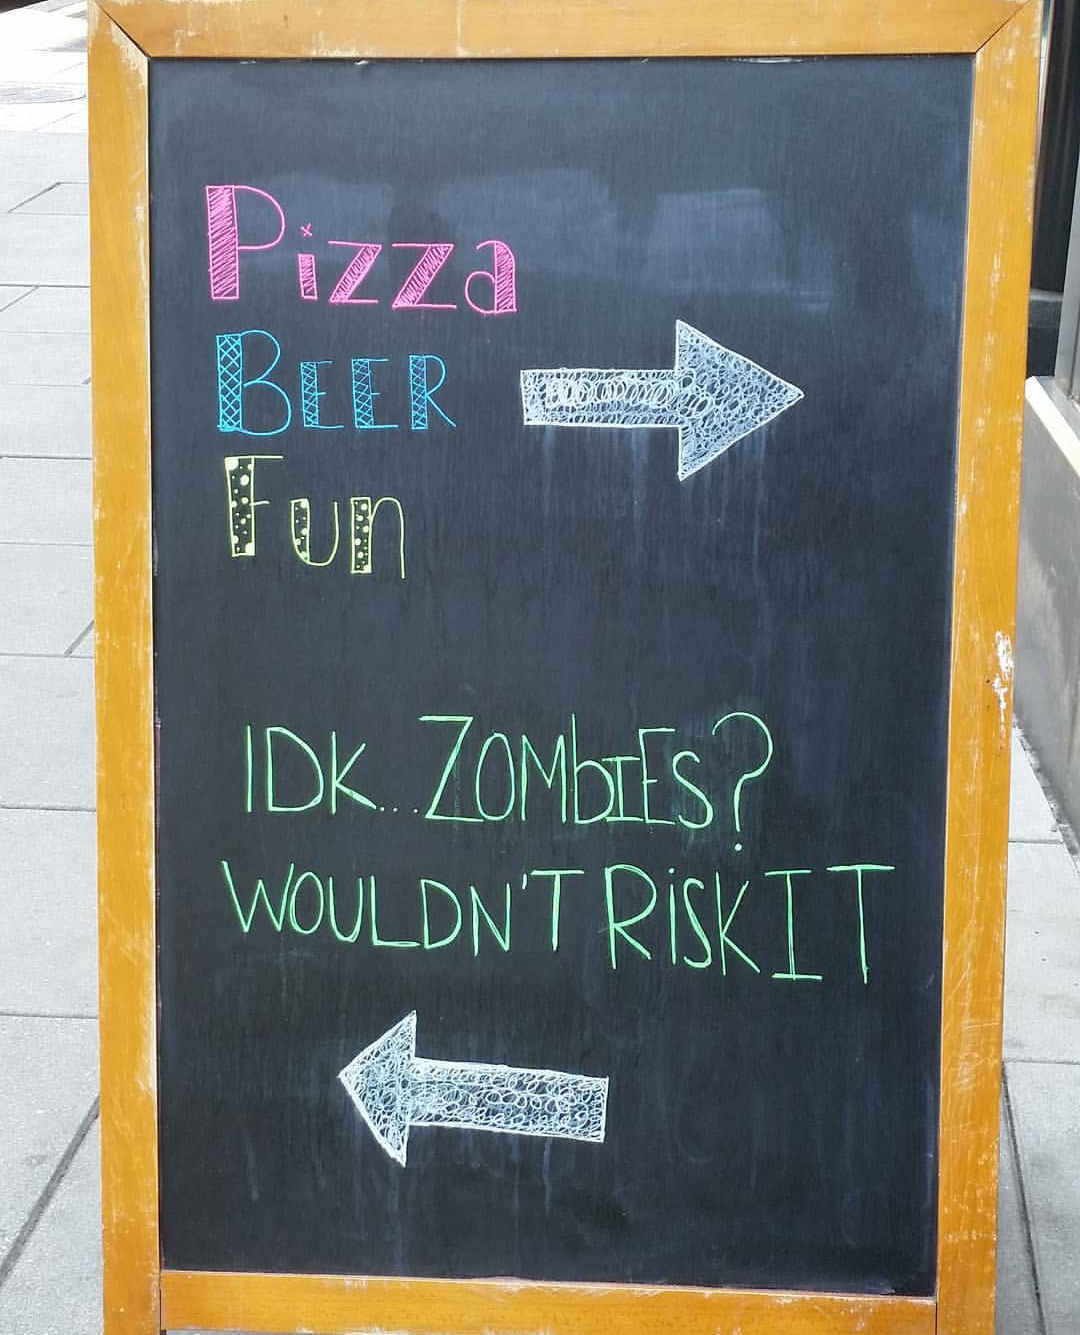 Pizza
BEER
Fun
IDK... ZOMbIES?
WOULDN'T RiSK IT